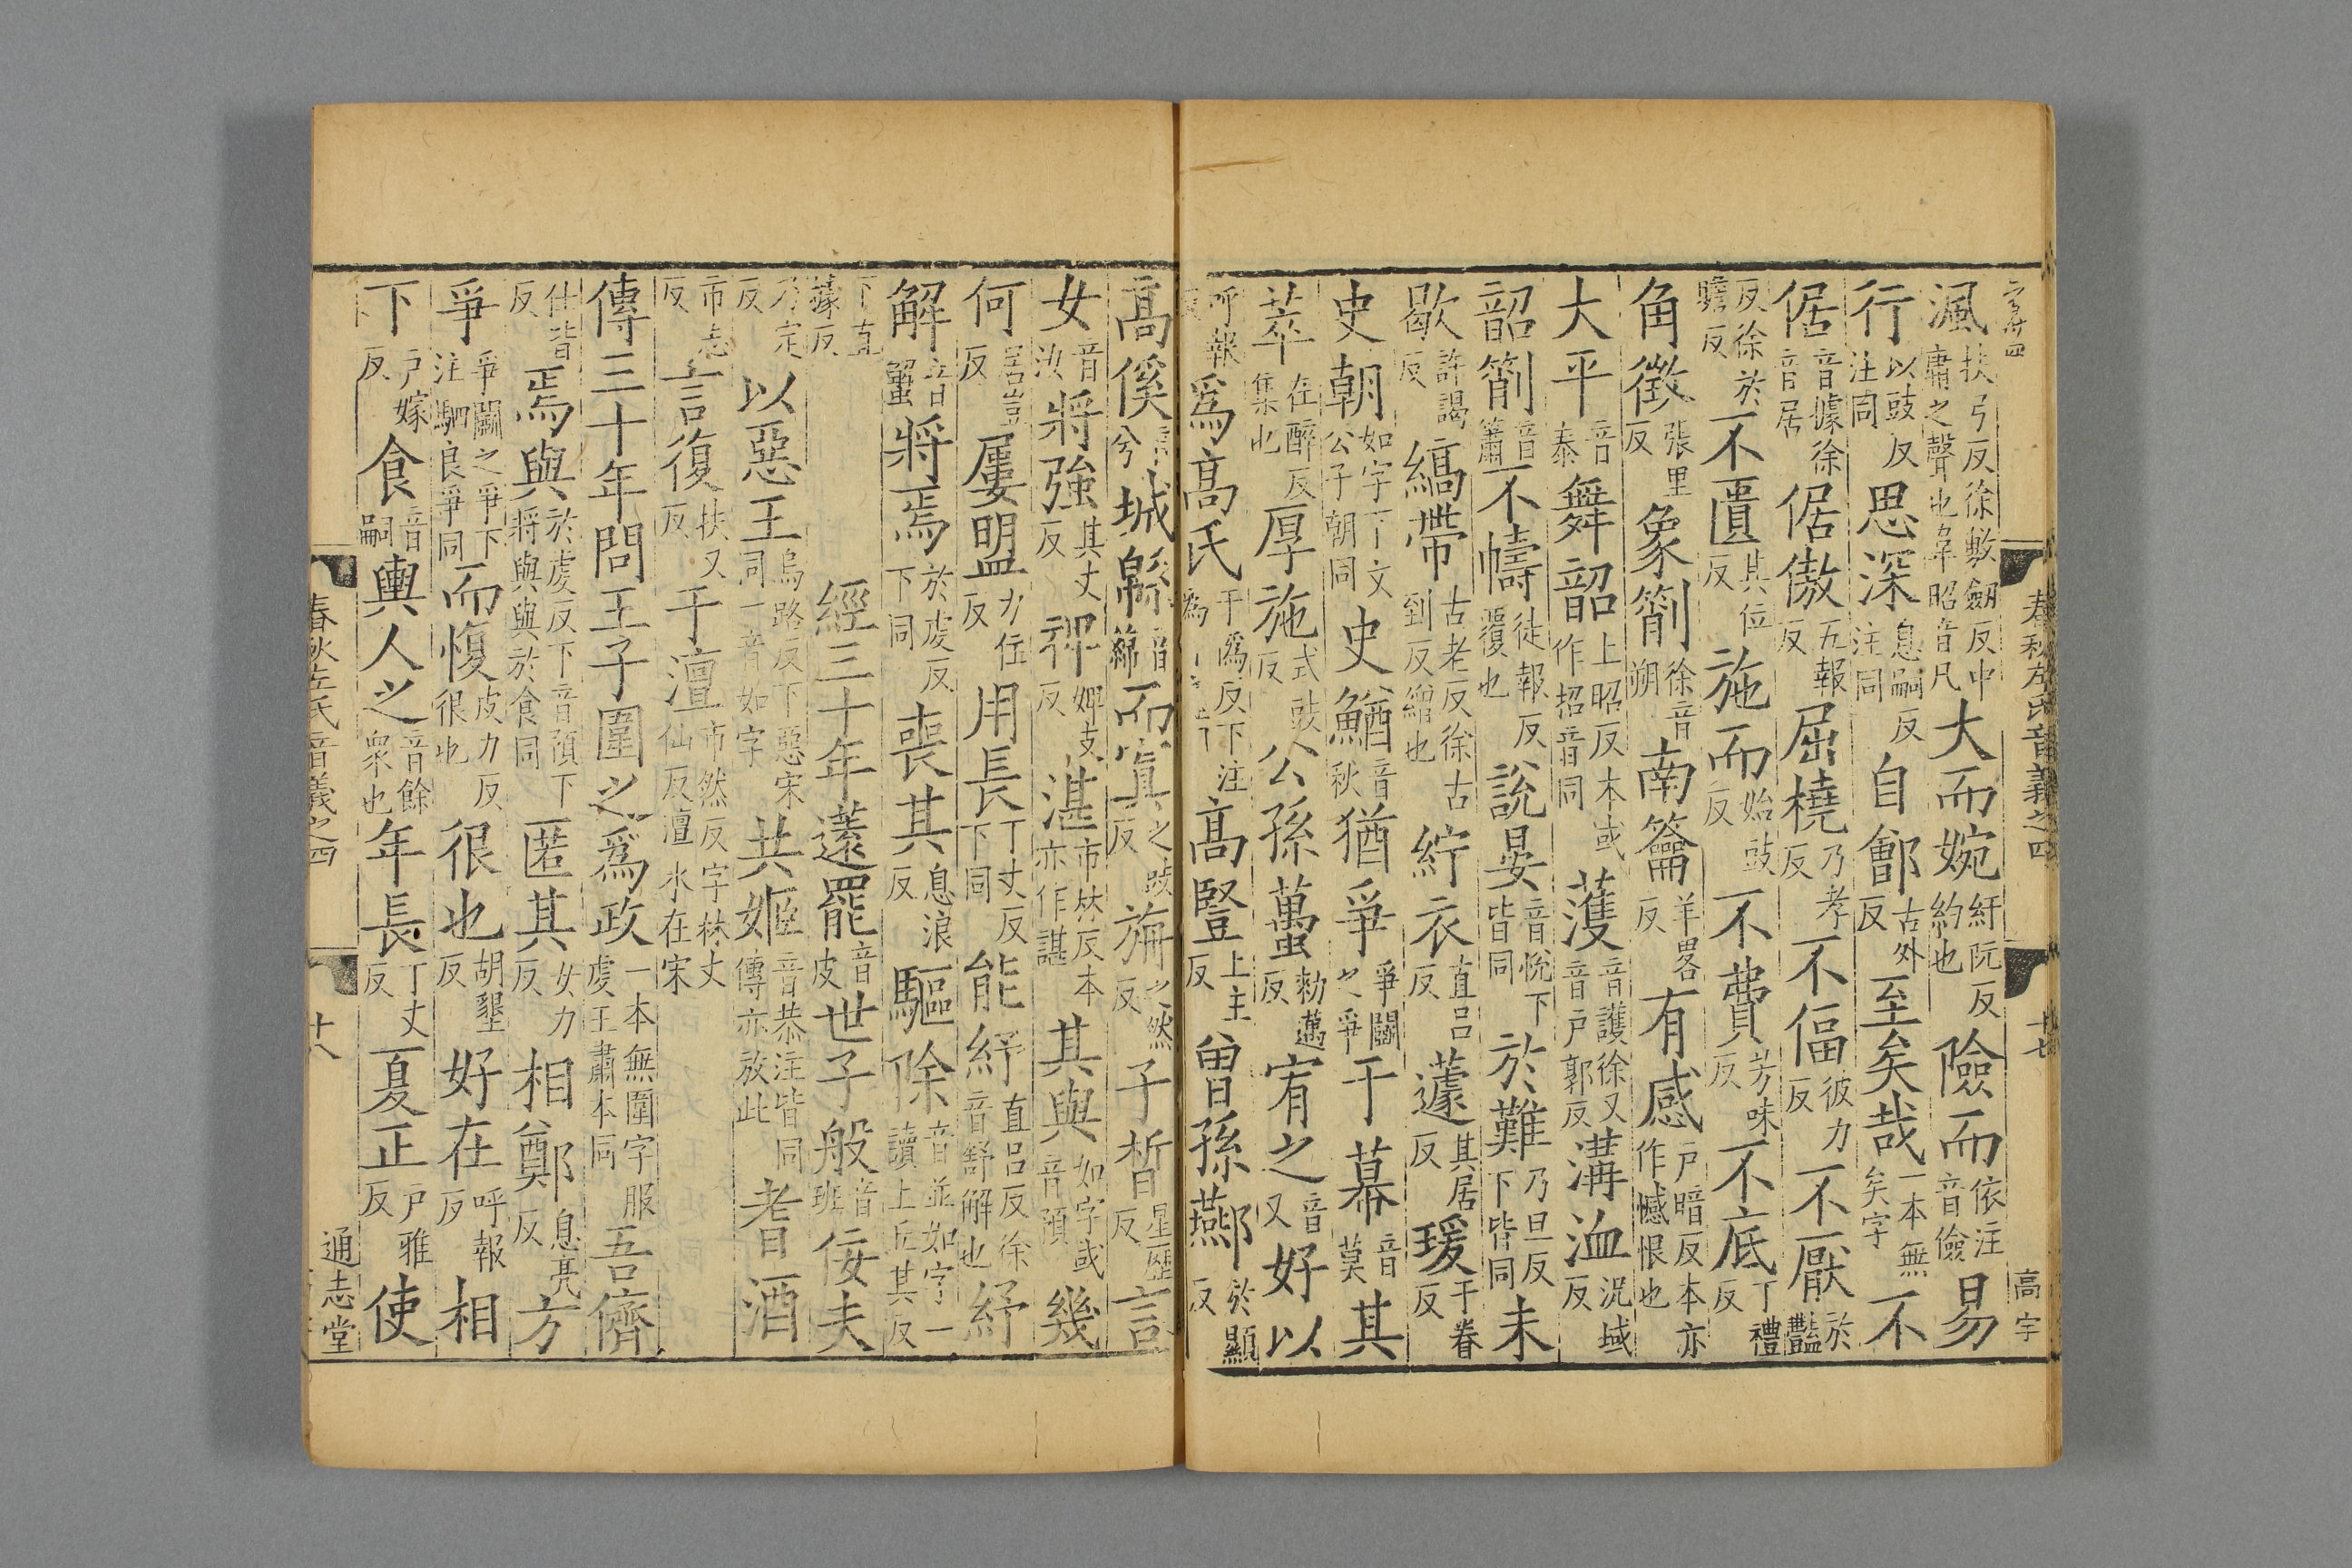 春秋左氏音義之四 十七 高字
渢扶弓反徐敷劒反中庸之聲也韋昭音凡大而婉紆阮反約也險而依注音儉易
行以豉反注同思深息嗣反注同自鄶古外反至矣哉一本無矣字不
倨音據徐音居倨傲五報反屈橈乃孝反不偪彼力反不厭於豔
反徐於贍反不匱其位反施而始豉反不費芳味反不底丁禮反
角徵張里反象箾徐音朔南籥羊畧反有感戶暗反本亦作憾恨也
大平音泰舞韶上昭反本或作招音同濩音護徐又音戶郭反溝洫況域反
韶箾音簫不幬徒報反覆也說晏音悅下皆同於難乃旦反下皆同未
歇許謁反縞帶古老反徐古到反繒也紵衣直吕反蘧其居反瑗于眷反
史朝如字下文公子朝同史鰌音秋猶爭爭鬭之爭干幕音莫其
萃在醉反集也厚施式豉反公孫蠆勑邁反宥之音又好以
呼報反爲高氏于僞反下注高豎上主反曾孫酀於顯反
高傒音兮城緜音綿而寘之豉反旃之然反子晳星歷反言
女音汝將強其丈反裨婢支反湛市林反本亦作諶其與如字或音預幾
何居豈反屢盟力住反用長丁丈反下同能紓直吕反徐音舒解也紓
解音蟹將焉於虔反下同喪其息浪反驅除音並如字一讀上丘其反
下直據反經三十年薳罷音皮世子般音班佞夫
乃定反以惡王烏路反下惡宋同一音如字共姬音恭注皆同傳亦放此耆酒
市志反言復扶又反于澶市然反字林丈仙反澶水在宋
傳三十年問王子圍之爲政一本無圍字服虔王肅本同吾儕
仕皆反焉與於虔反下音預下將與與於食同匿其女力反相鄭息亮反方
爭爭鬭之爭下注駟良爭同而愎皮力反很也很也胡墾反好在呼報反相
下戶嫁反食音嗣輿人之音餘衆也年長丁丈反夏正戶雅反使
春秋左氏音義之四 十八 通志堂